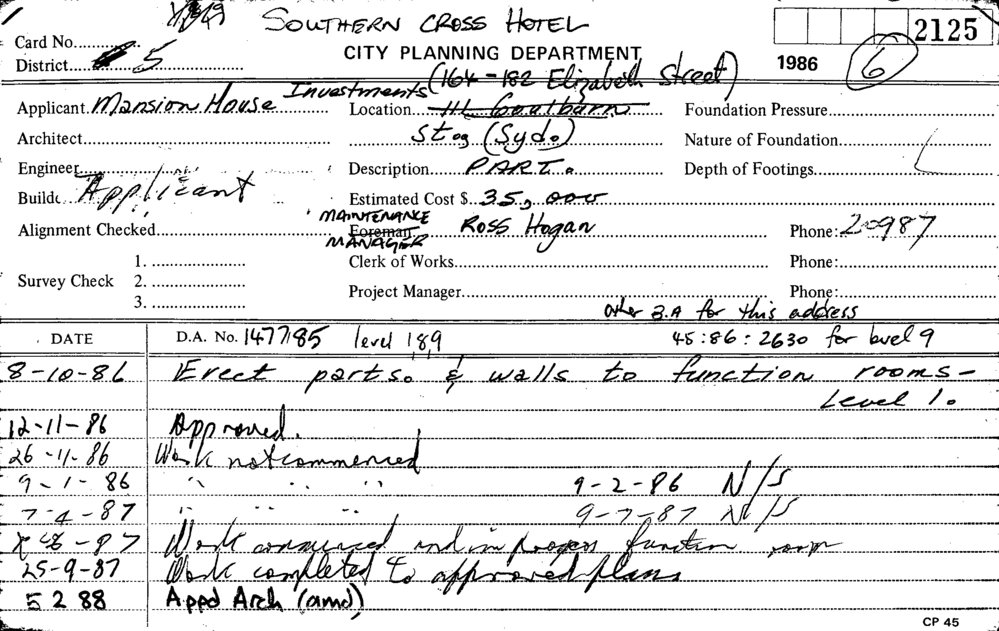 SOUTHERN CROSS HOTEL
2125
Card No.
CITY PLANNING DEPARTMENT
District 5
1986
6
(164-182 Elizabeth Street)
Applicant Mansion House Investments
Location 111 Goulburn
Foundation Pressure
Architect
St. (Syd.)
Nature of Foundation
Engineer
Description PART.
Depth of Footings
Builde Applicant
Estimated Cost $ 35,000
Alignment Checked
MAINTENANCE
Foreman Ross Hogan
MANAGER
Phone: 20987
Survey Check
1.
2.
3.
Clerk of Works
Phone:
Project Manager
Phone:
other B.A for this address
DATE
D.A. No. 1477/85 level 1&9
45:86:2630 for level 9
8-10-86 Erect parts. & walls to function rooms-
Level 1.
12-11-86 Approved.
26-11-86 Work not commenced
9-1-86 " " " 9-2-86 N/S
7-4-87 " " " 9-7-87 N/S
8-87 Work commenced and in progress function room
25-9-87 Work completed to approved plans
5 2 88 Appd Arch (amd)
CP 45